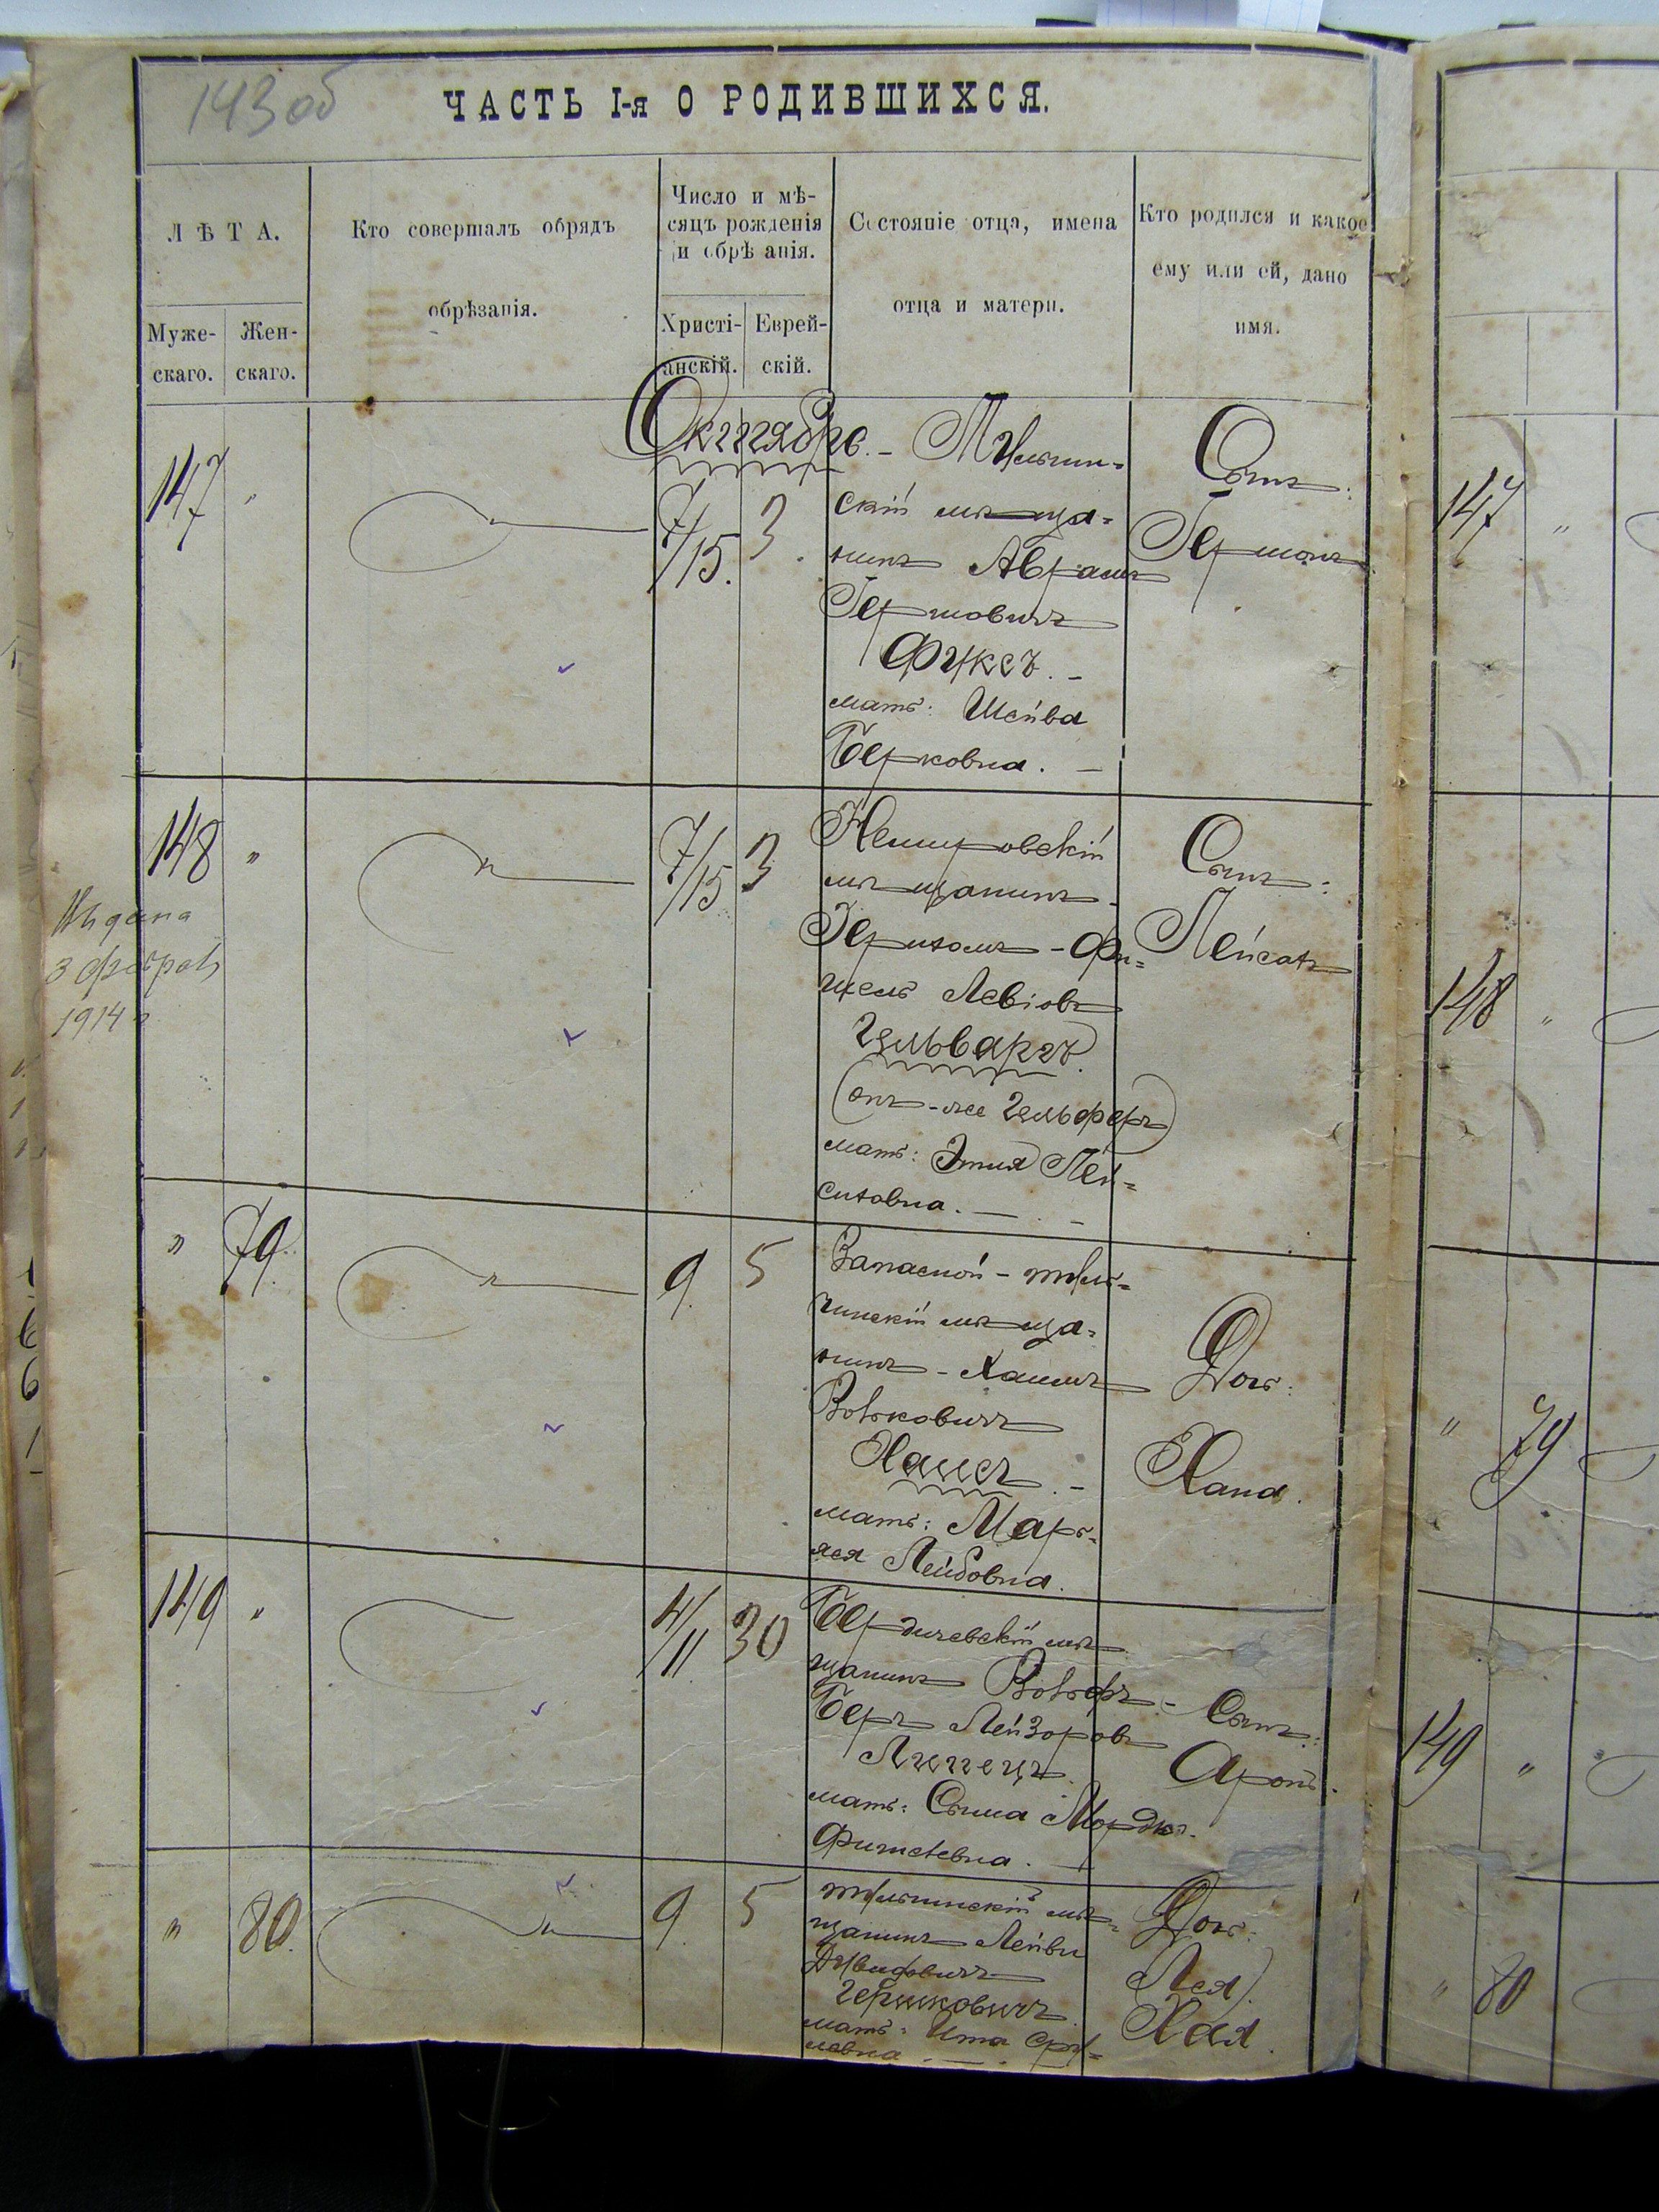 143 об
ЧАСТЬ I-я О РОДИВШИХСЯ.
ЛѢТА.
Муже-
скаго.
Жен-
скаго.
Кто совершалъ обрядъ
обрѣзанія.
Число и мѣ-
сяцъ рожденія
и обрѣ анія.
Христі-
анскій.
Еврей-
скій.
Состояніе отца, имена
отца и матери.
Кто родился и какое
ему или ей, дано
имя.
Октябрь. –
147 "
7/15. 3.
Тульчин-
скій мѣща-
нинъ Аврамъ
Гершовичъ
Фуксъ. –
мать: Шейва
Берковна. –
Сынъ:
Гершонъ
148 "
7/15 3
Немировскій
мѣщанинъ
Герихомъ-Фи-
шель Левіовъ
Гельваргъ.
(онъ-же Гельферъ)
мать: Этия Пей-
сиховна. – . –
Сынъ:
Пейсахъ
Выдана
3 феврал
1914 г
" 79.
9. 5
Запасной – туль-
чинскій мѣща-
нинъ – Хаимъ
Волковичъ
Хаисъ. –
мать: Марь-
яся Лейбовна.
Дочь:
Хана.
149 "
4/11 30
Бердичевскій мѣ
щанинъ Вольфъ-
Беръ Лейзоровъ
Липецъ.
мать: Сыма Мордко-
Фишелевна. –
Сынъ:
Аронъ.
" 80.
9. 5
тульчинскій мѣ-
щанинъ Лейви
Дувидовичъ
Гершковичъ.
мать: Ита Сру-
левна. – .
Дочь:
Лея
Хая.
147 "
148 "
" 79
149 "
" 80